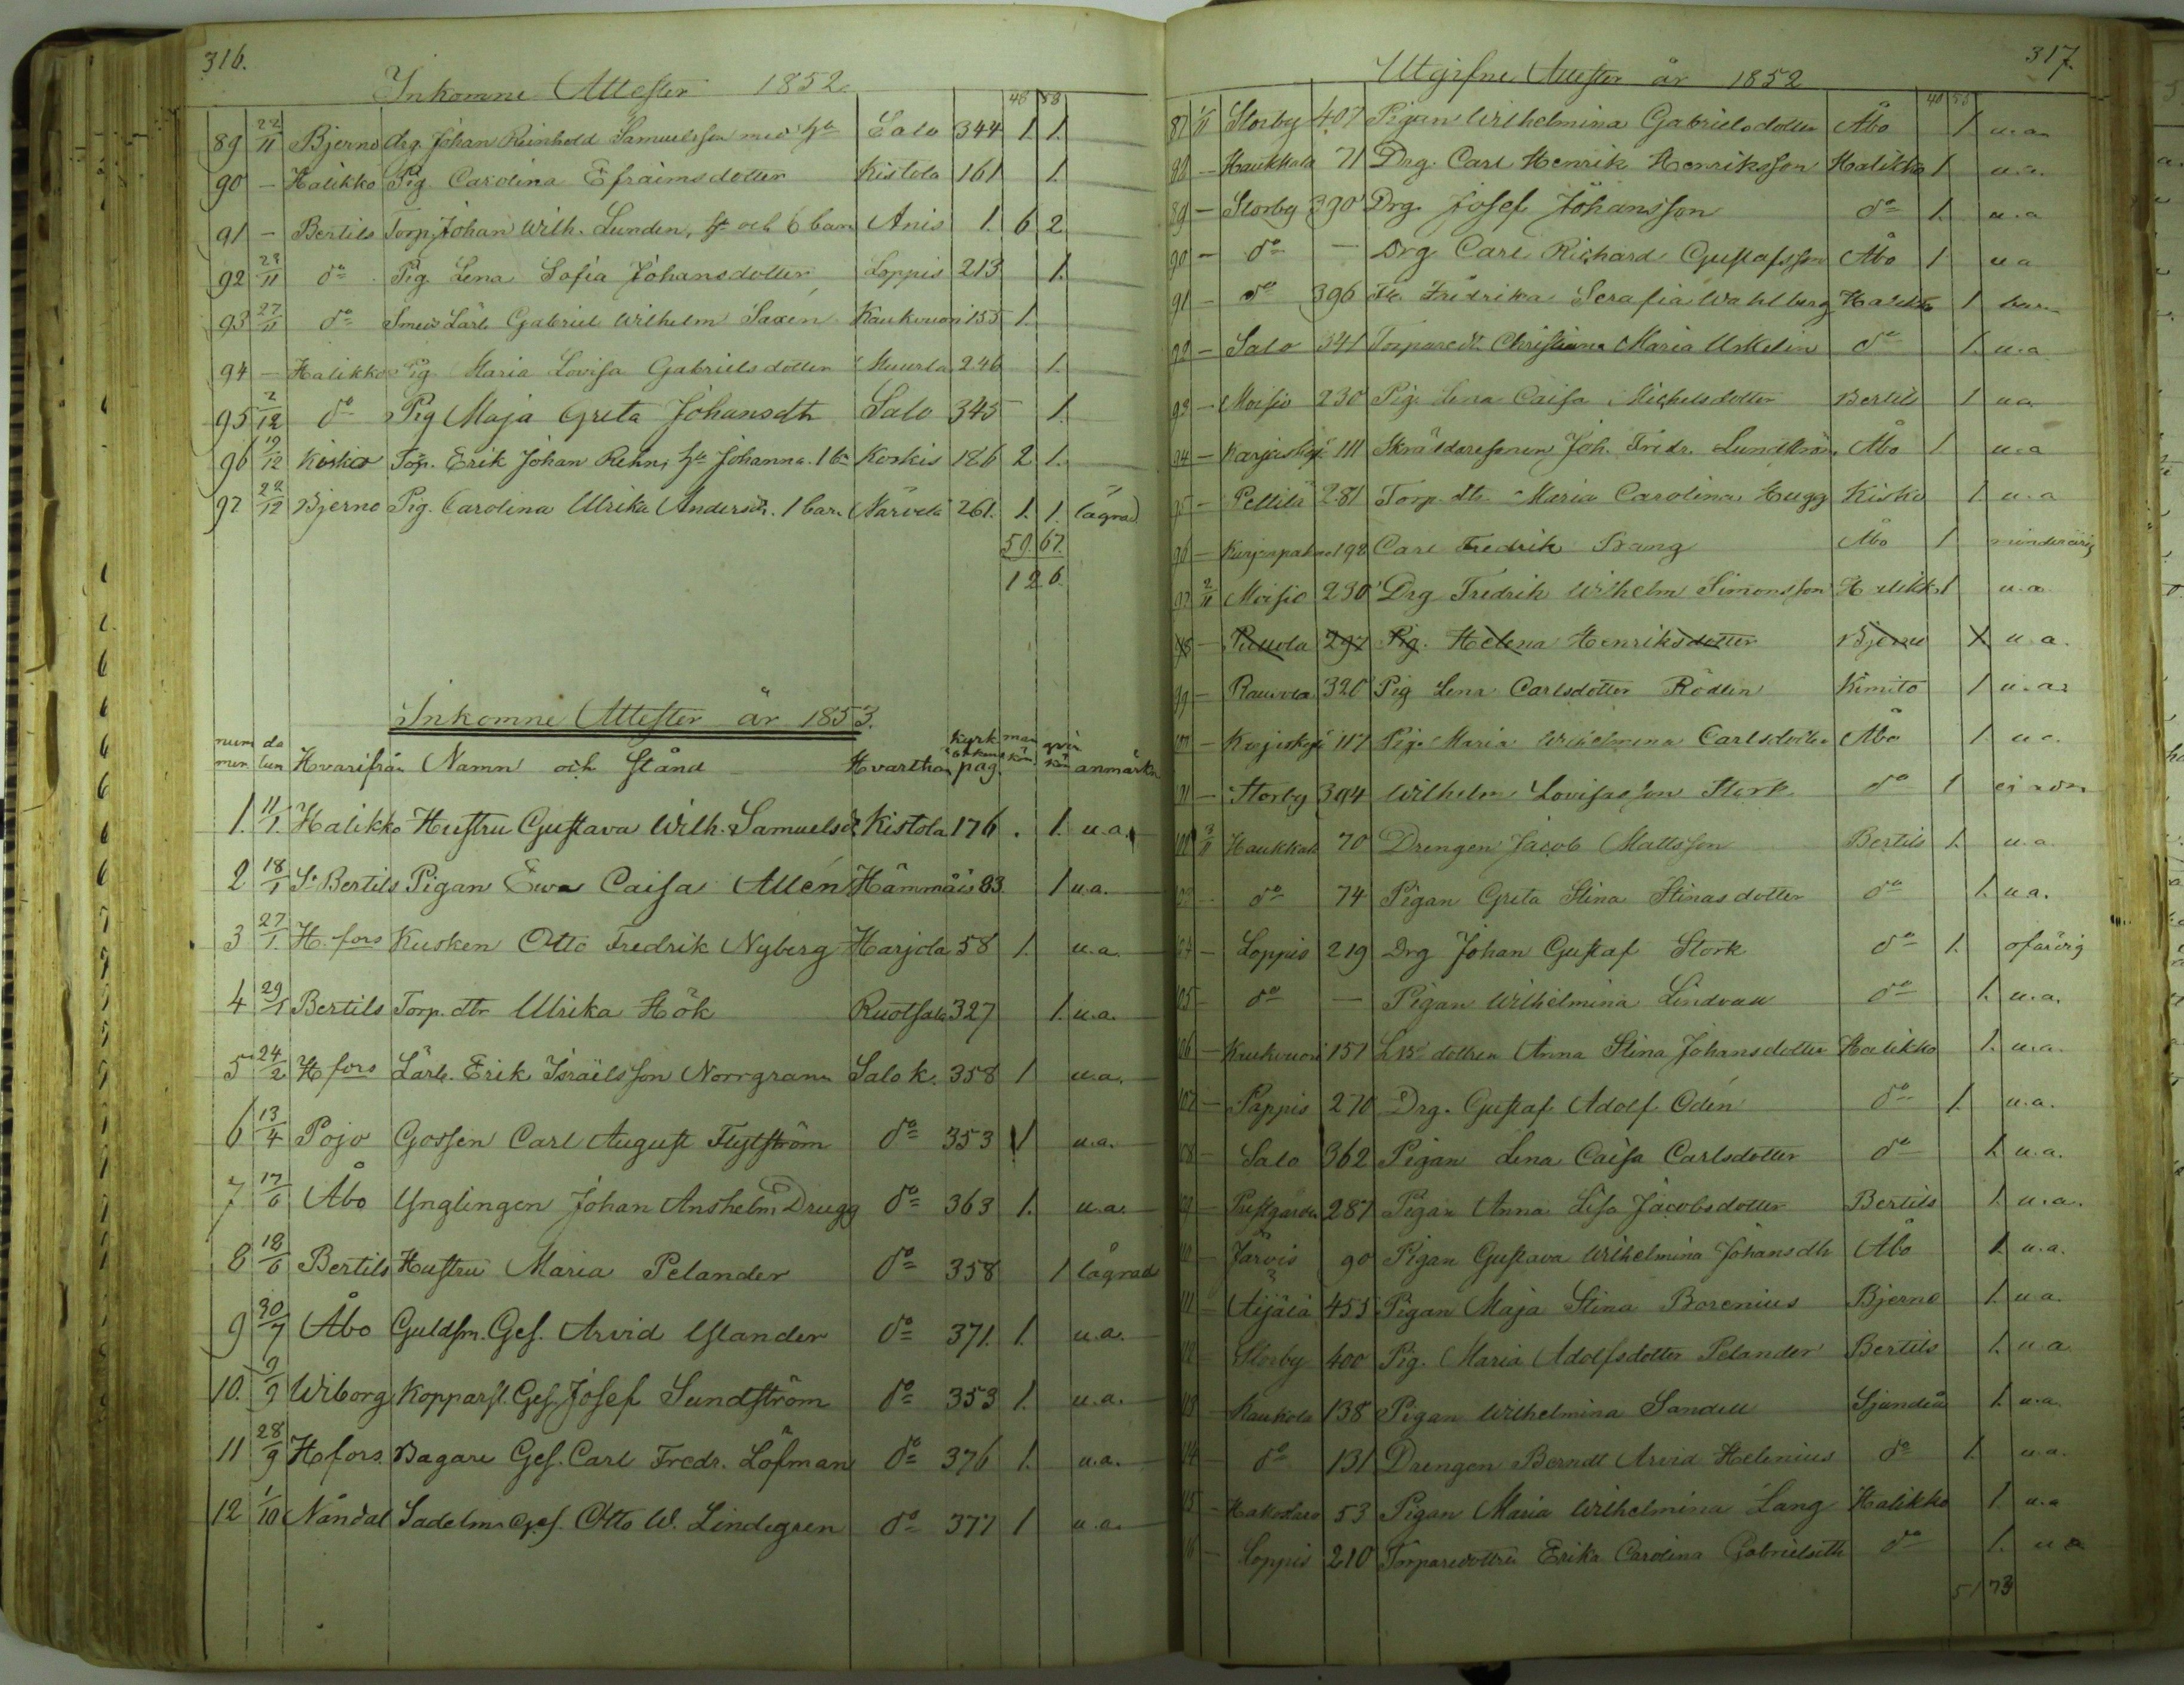 316.
Inkomne Attester 1852
48 58
89 22/11 Bjerno drg. Johan Reinhold Samuelsson med hu Salo 344 1. 1.
90 - Halikko Pig Carolina Efraimsdotter Kistola 161 1.
91 - Bertils Torp. Johan Wilh. Lunden, hu och 6 barn Anis 1. 6 2
92 23/11 do Pig Lena Sofia Johansdotter Loppis 213 1.
93 27/11 do Smeds Lärl. Gabriel Wilhelm Saxén Kaukvuori 155 1.
94 - Halikko Pig Maria Lovisa Gabrielsdotter Muurla 246 1.
95 2/12 do Pig Maja Greta Johansdtr Salo 345 1.
96 19/12 Kisko Torp. Erik Johan Rehn, hu Johanna. 1 bn Koskis 186 2 1.
97 22/12 Bjerno Pig. Carolina Ulrika Andersdr. 1 barn Närvelä 261. 1. 1. lägrad
59. 67.
126.
Inkomne Attester år 1853.
num mer da tum Hvarifrån Namn och stånd Hvarthän kyrk bokens pag. man kön qvin kön anmärkn
1. 11/1. Halikko Hustru Gustava Wilh. Samuelsd. Kistola 176 . 1. u.a.
2 18/1 St Bertils Pigan Ewa Caisa Allén Hämmäis 83 1 u.a.
3 27/1 H.fors Kusken Otto Fredrik Nyberg Harjola 58 1. u.a.
4 29/1 Bertils Torp. dtr Ulrika Hök Ruotsala 327 1. u.a.
5 24/2 H.fors Lärl. Erik Israëlsson Norrgrann Salo k. 358 1 u.a.
6 13/4 Pojo Gossen Carl August Flytström do 353 1 u.a.
7 17/6 Åbo Ynglingen Johan Anshelm Drugg do 363 1. u.a.
8 18/6 Bertils Hustru Maria Pelander do 358 1 lägrad
9 30/7 Åbo Guldsm. Ges. Arvid Islander do 371. 1. u.a.
10. 9/9 Wiborg Kopparsl. Ges. Josef Sundström do 353 1. u.a.
11 28/9 Hfors. Bagare Ges. Carl Fredr. Löfman do 376 1. u.a.
12 1/10 Nändal Sadelm. Ges. Otto W. Lindegren do 377 1 u.a.
317
Utgifne Attester år 1852
48 58
87 1/11 Storby 407 Pigan Wilhelmina Gabrielsdotter Åbo 1 u.a.
88 - Haukkala 71 Drg. Carl Henrik Henriksson Halikko 1 u.a.
89 - Storby 390 Drg. Josef Johansson do 1. u.a
90 - do - Drg Carl Richard Gustafsson Åbo 1 u a
91 - do 396 Fredrika Serafia Wahlberg Halikko 1
92 - Salo 341 Torparedtr. Christiana Maria Uskelin do 1. u.a
93 - Moisio 230 Pig. Lena Caisa Michelsdotter Bertils 1 u a
94 - Karjaskylä 111 Skräddaresonen Joh. Fredr. Lundström Åbo 1 u.a
95 - Pellilä 281 Torp. dtr Maria Carolina Hugg Kisko 1. u.a
96 - 192 Carl Fredrik Prang Åbo 1 minderårig
97 2/11 Moisio 230 Drg Fredrik Wilhelm Simonsson Halikko 1 u.a
98 - 297 Pig. Helena Henriksdotter Bjerno 1 u.a.
99 - Rauvola 320 Pig Lena Carlsdotter Rödlin Kimito 1 u.a.
100 - 117 Pig. Maria Wilhelmina Carlsdotter Åbo 1 u a.
101 - Storby 394 Wilhelm Lovisasson Stork do 1
102 3/11 Haukkala 70 Drengen Jacob Mattsson Bertils 1. u.a
103 - do 74 Pigan Greta Stina Stinasdotter do 1. u.a.
104 - Loppis 219 Drg Johan Gustaf Stork do 1. ofärdig
105 - do - Pigan Wilhelmina Lindvall do 1. u.a.
106 - Kaukvuori 157 dottren Anna Stina Johansdotter Halikko 1. u.a.
107 - Pappis 270 Drg. Gustaf Adolf Odén do 1. u.a.
108 - Salo 362 Pigan Lena Caisa Carlsdotter do 1. u.a.
109 - Prestgården 287 Pigan Anna Lisa Jacobsdotter Bertils 1. u.a.
110 - Järvis 90 Pigan Gustava Wilhelmina Johansdtr Åbo 1. u.a.
111 - Äijälä 455 Pigan Maja Stina Borenius Bjerno 1. u.a.
112 - Storby 400 Pig. Maria Adolfsdotter Pelander Bertils 1. u.a
113 - Kaukola 138 Pigan Wilhelmina Sandell Sjundeå 1. u.a.
114 - do 131 Drengen Berndt Arvid Helenius do 1. u.a.
115 - Hakostaro 53 Pigan Maria Wilhelmina Lang Halikko 1. u.a
116 - Loppis 210 Torparedottren Erika Carolina Gabrielsdtr do 1. u a
51 73